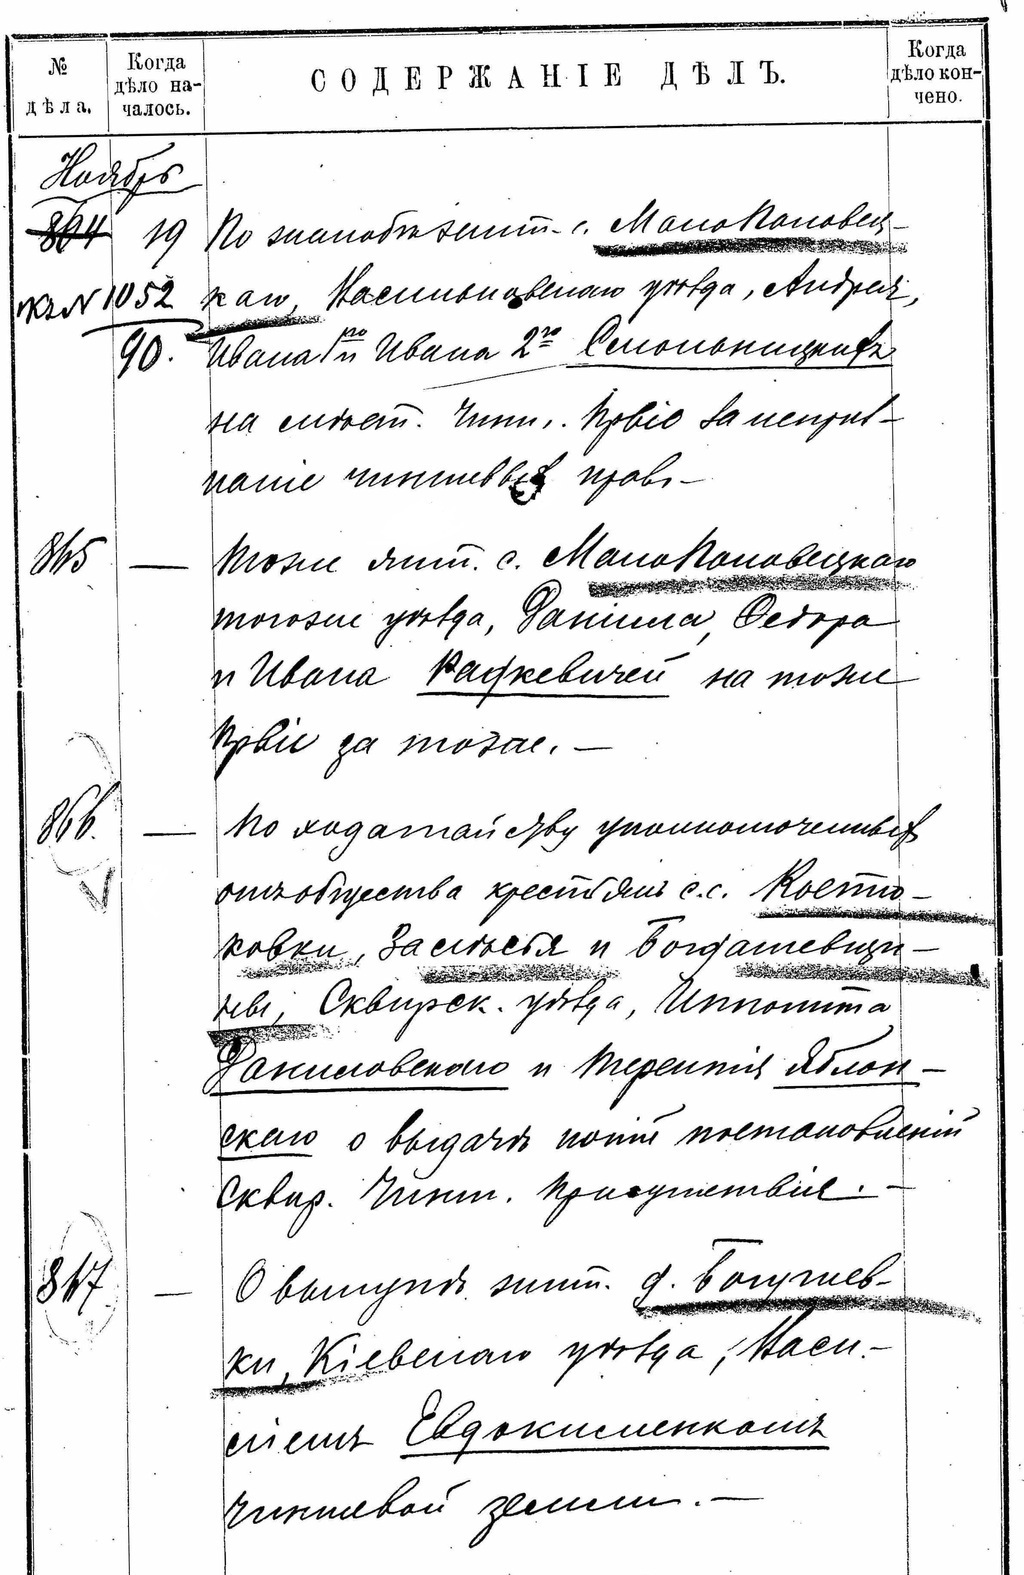 № дѣла.
Когда дѣло на-
чалось.
СОДЕРЖАНІЕ ДѢЛЪ.
Когда дѣло кон-
чено.
Ноябрь
864 19 По жалобѣ жит. с. Малополовец-
къ № 1052 каго, Васильковскаго уѣзда, Андрея,
90. Ивана 1го и Ивана 2го
на мѣст. Чинш. ПрВіе за непри-
наніе чиншевыхъ правъ —
865 — Тоже жит. с. Малополовецкаго
тогоже уѣзда, Данила, Федора
и Ивана Рацкевичей на тоже
ПрВіе за тоже. —
866. — По ходатайству уполномоченныхъ
отъ общества крестьянъ с.с.

и
Сквирск. уѣзда, Ипполита
Даниловскаго и Терентія Яблон-
скаго о выдачѣ копій постановленій
Сквир. Чинш. Присутствія. —
867 — О выкупѣ жит. д.
ки, Кіевскаго уѣзда, Васи-
ліемъ Евдокименкомъ
чиншевой земли. —